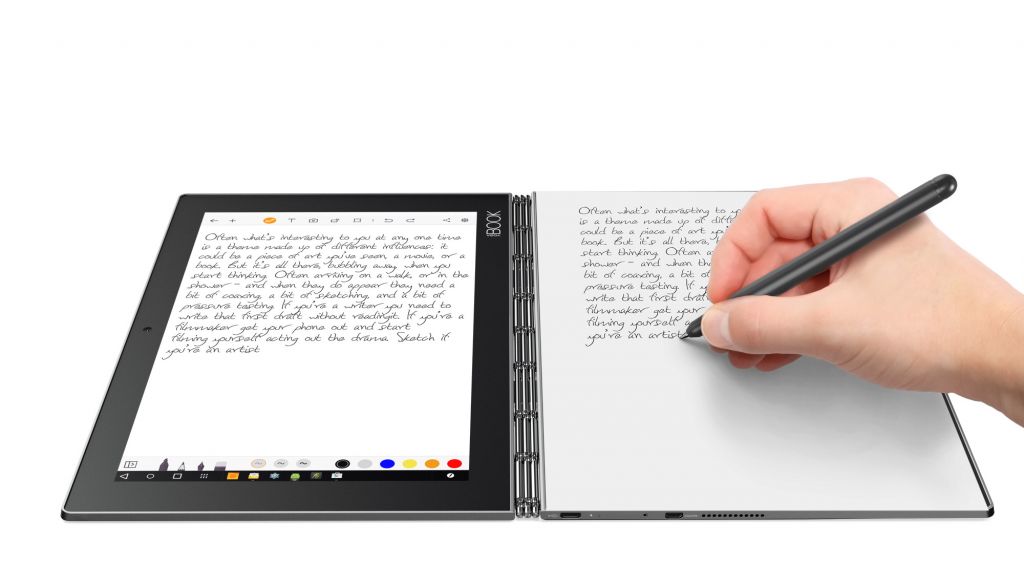 BOOK
Often what's interesting to you at any one time
is a theme made up of different influences: it
could be a piece of art you've seen, a movie, or a
book. But it's all there, bubbling away, when you
start thinking. Often arriving on a walk, or in the
shower – and when they do appear they need a
bit of coaxing, a bit of sketching, and a bit of
pressure tasting. If you're a writer you need to
write that first draft without readingit. If you're a
filmmaker get your phone out and start
filming yourself acting out the drama. Sketch if
you're an artist
Often what's interesting to yo
is a theme made up of diffe
could be a piece of art yo
book. But it's all there,
start thinking. Often a
shower – and when th
bit of coaxing, a bit o
pressure tasting. If
write that first dra
filmmaker get your
filming yourself a
you're an artist